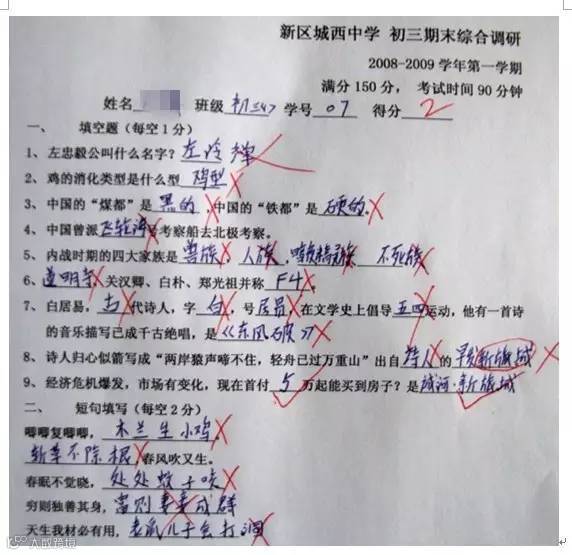 新区城西中学 初三期末综合调研
2008-2009 学年第一学期
满分 150 分， 考试时间 90 分钟
姓名 班级 初三47 学号 07 得分 2
一、 填空题（每空 1 分）
1、左忠毅公叫什么名字？左冷禅
2、鸡的消化类型是什么型 鸡型
3、中国的“煤都”是 黑的 ,中国的“铁都”是 硬的.
4、中国曾派飞轮海号考察船去北极考察。
5、内战时期的四大家族是 兽族、人族、暗夜精灵族、不死族
6、道明寺、关汉卿、白朴、郑光祖并称 F4 。
7、白居易，古代诗人，字 白，号居易，在文学史上倡导五四运动，他有一首诗
的音乐描写已成千古绝唱，是《东风破》
8、诗人归心似箭写成“两岸猿声啼不住，轻舟已过万重山”出自 诗人 的 早发新旅城
9、经济危机爆发，市场有变化，现在首付 5 万起能买到房子？是 域河·新旅城
二、 短句填写（每空 2 分）
唧唧复唧唧， 木兰生小鸡
斩草不除根 春风吹又生。
春眠不觉晓， 处处蚊子咬
穷则独善其身，富则妻妾成群
天生我材必有用，老鼠儿子会打洞
大欧跨境